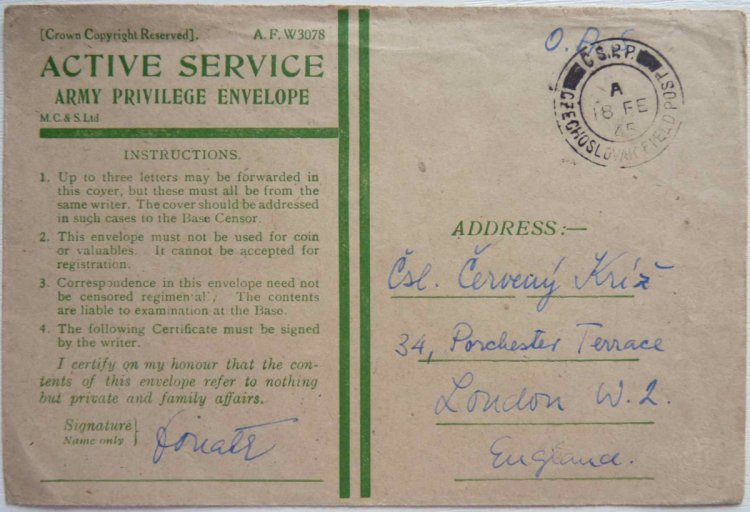 [Crown Copyright Reserved]. A. F. W3078
ACTIVE SERVICE
ARMY PRIVILEGE ENVELOPE
M.C. & S.Ltd
INSTRUCTIONS.
1. Up to three letters may be forwarded in
this cover, but these must all be from the
same writer. The cover should be addressed
in such cases to the Base Censor.
2. This envelope must not be used for coin
or valuables. It cannot be accepted for
registration.
3. Correspondence in this envelope need not
be censored regimental. The contents
are liable to examination at the Base.
4. The following Certificate must be signed
by the writer.
I certify on my honour that the con-
tents of this envelope refer to nothing
but private and family affairs.
Signature
Name only
CZECHOSLOVAK FIELD POST
A
18 FE
45
ADDRESS :—
Čsl. Červený Kříž
34, Porchester Terrace
London W. 2.
England.